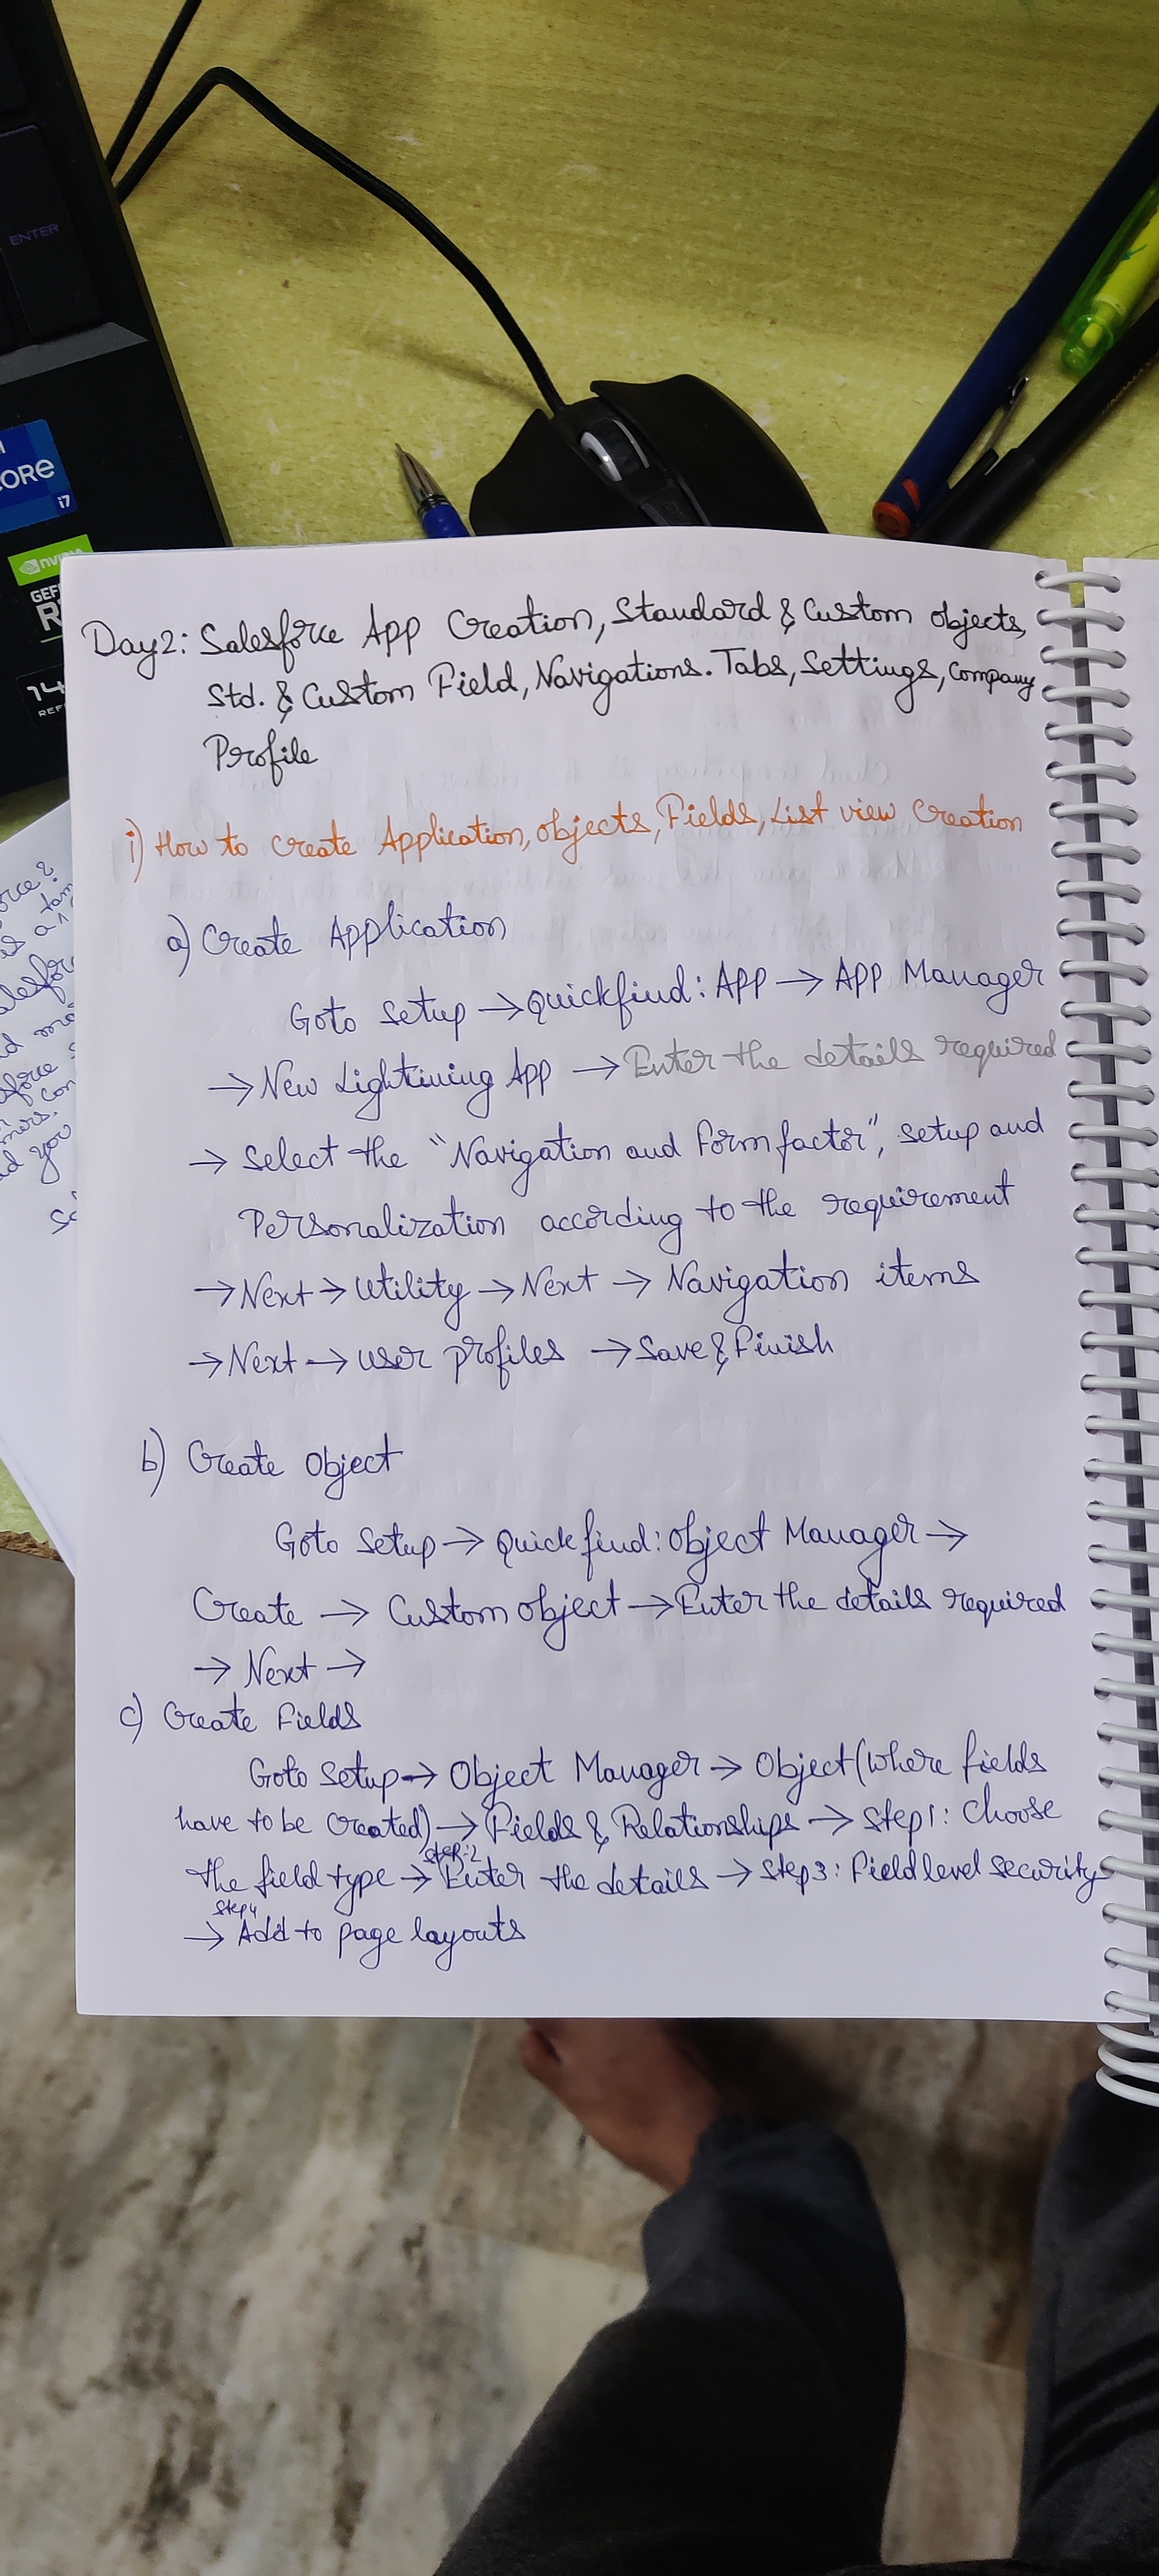 ENTER
CORE
i7
nvidia
GEF
R
14
REF
Day2: Salesforce App Creation, Standard & Custom objects,
Std. & Custom Field, Navigations. Tabs, Settings, Company
Profile
i) How to create Application, objects, Fields, List view Creation
a) Create Application
Goto Setup → Quickfind: App → App Manager
→ New Lightining App → Enter the details required
→ Select the "Navigation and Form factor", setup and
Personalization according to the requirement
→ Next → Utility → Next → Navigation items
→ Next → user profiles → Save & Finish
b) Create Object
Goto Setup → Quick find: Object Manager →
Create → Custom object → Enter the details required
→ Next →
c) Create Fields
Goto Setup → Object Manager → Object (Where fields
have to be created) → Fields & Relationships → Step1: Choose
the field type → Step:2 Enter the details → Step3: Field level security
Step4
→ Add to page layouts